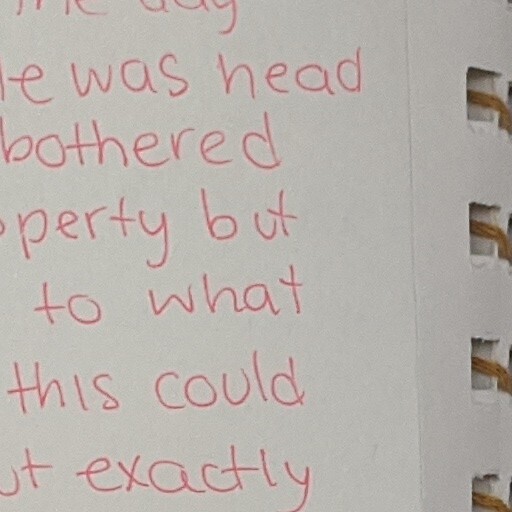 day
was head
bothered
but
to what
this could
exactly